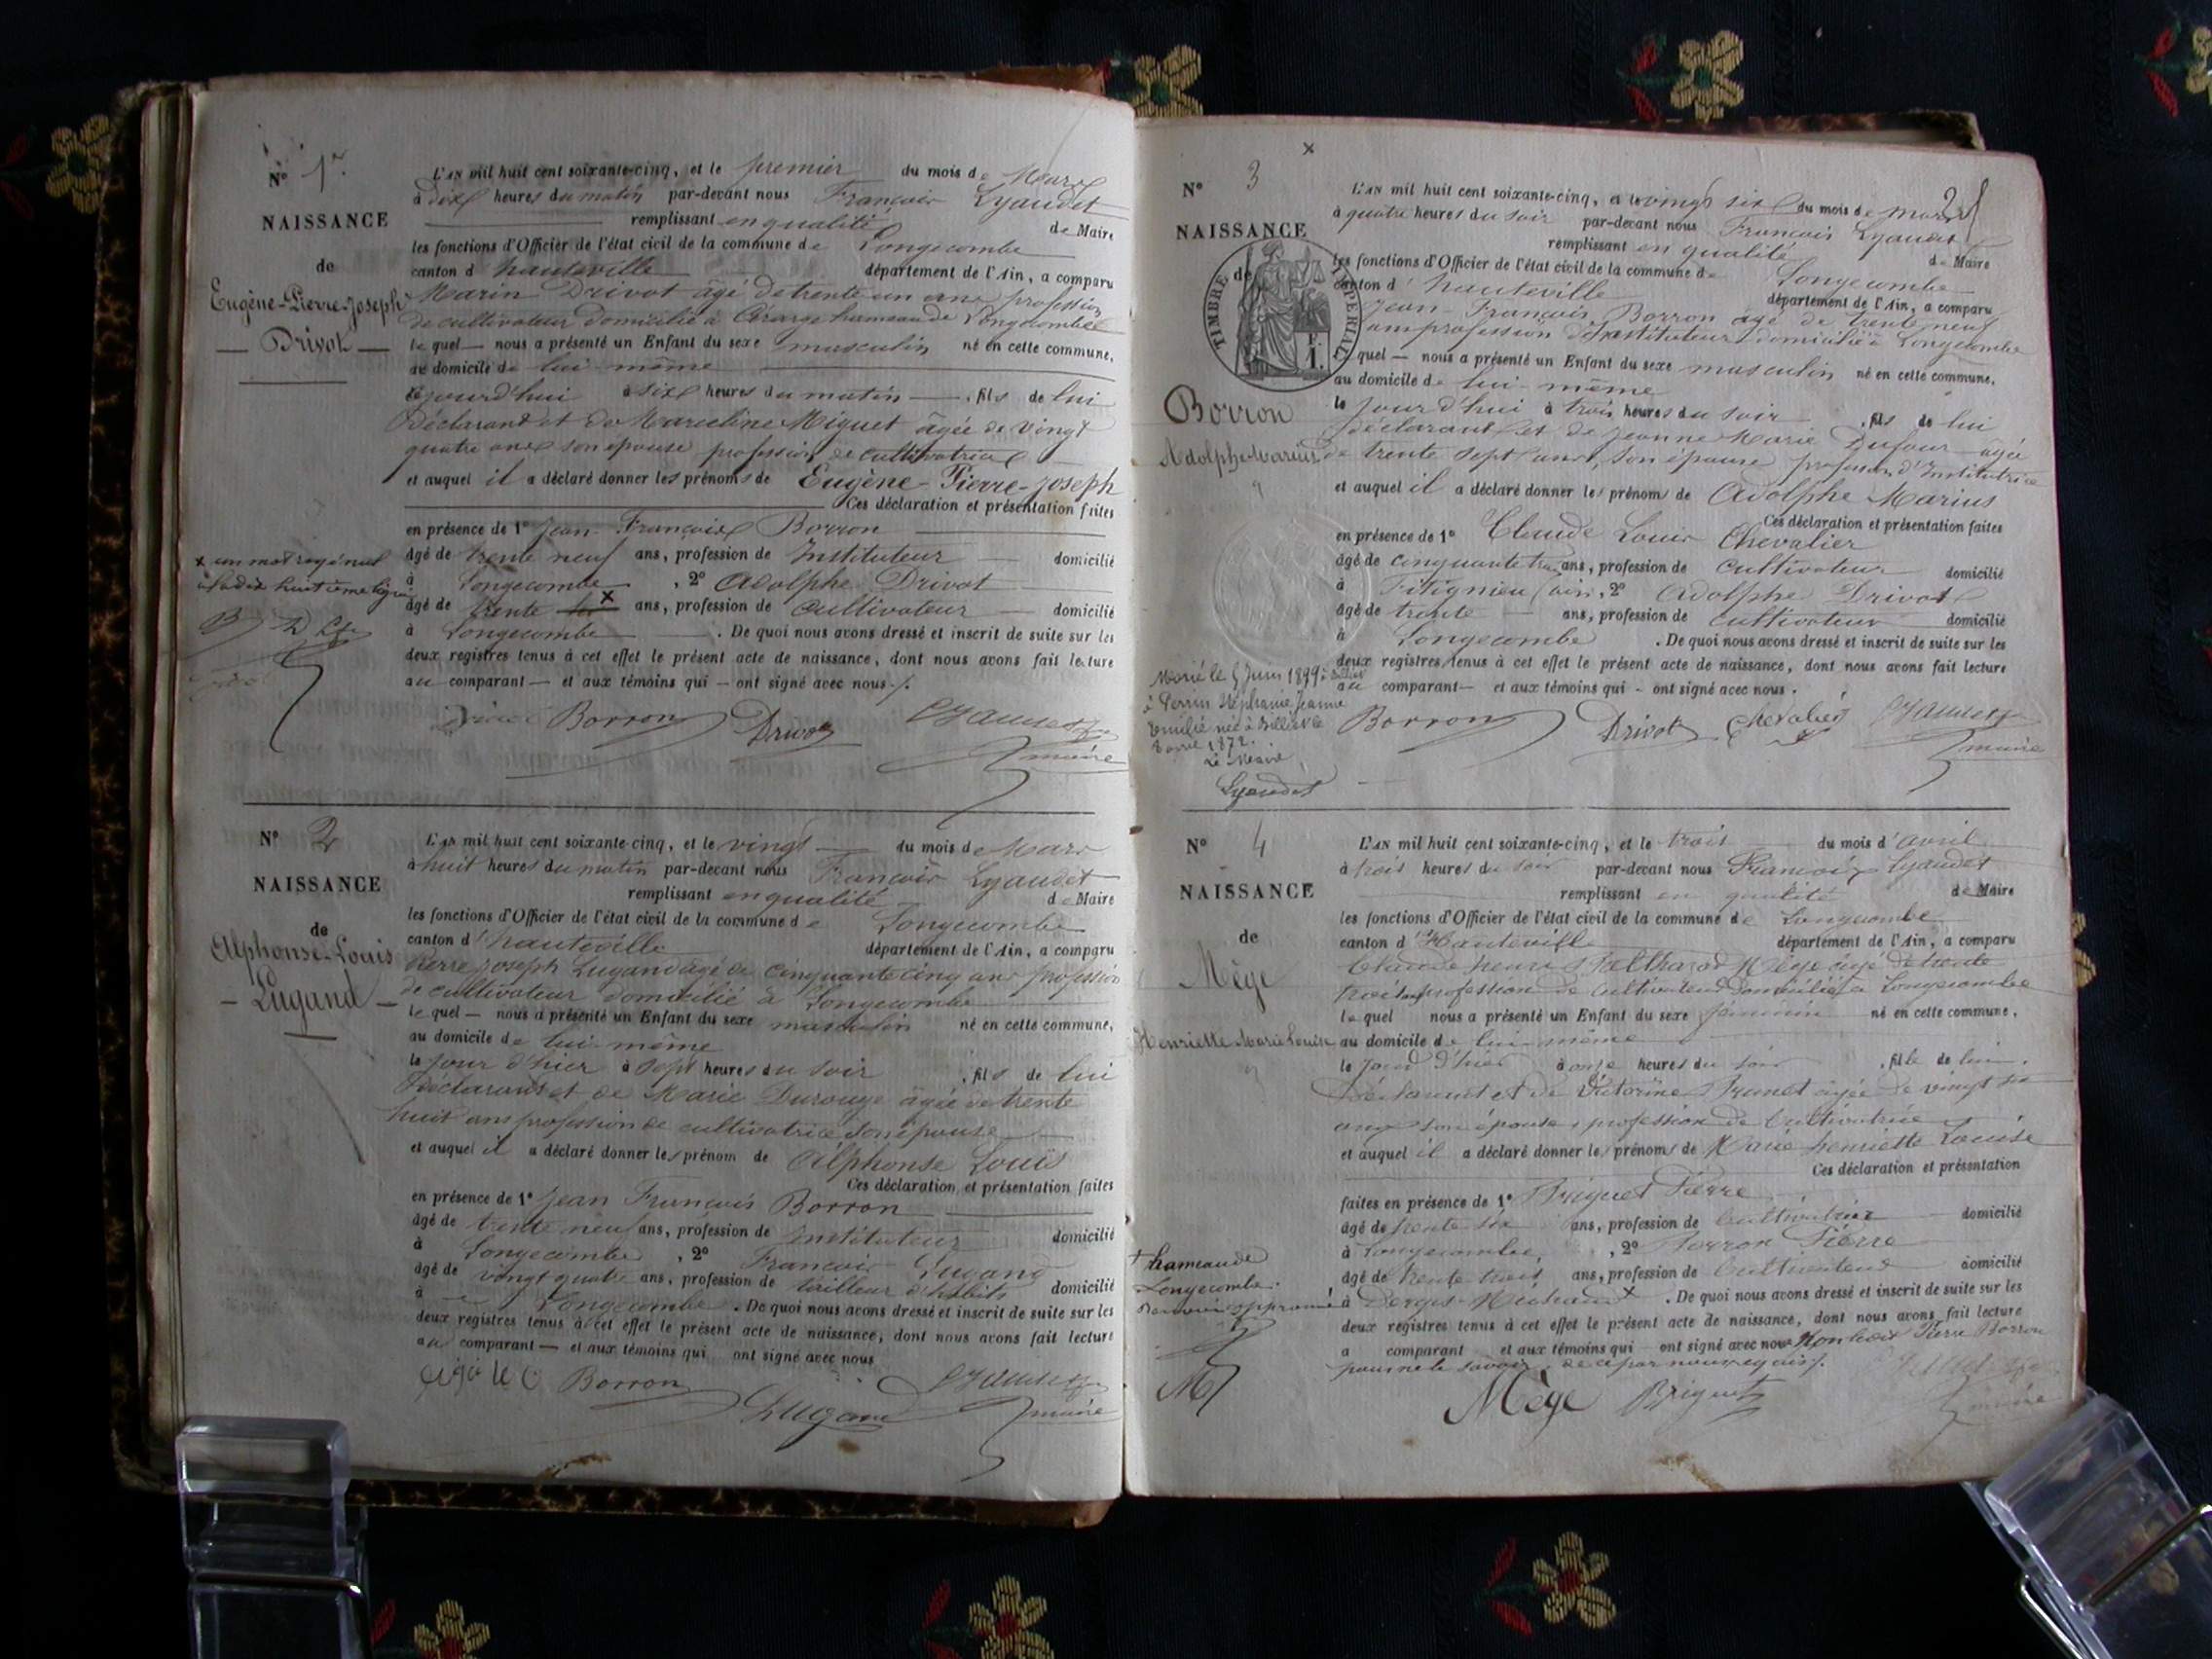 N° 1er
NAISSANCE
de
Eugène-Pierre-Joseph
Drivot
L'AN mil huit cent soixante-cinq, et le premier du mois de Mars
à dix heures du matin par-devant nous François Lyaudet
remplissant en qualité de Maire
les fonctions d'Officier de l'état civil de la commune de Longecombe
canton d'hauteville département de l'Ain, a comparu
Marin Drivot âgé de trente un ans profession
de cultivateur domicilié à hameau de Longecombe
lequel nous a présenté un Enfant du sexe masculin né en cette commune,
au domicile de lui même
cejourd'hui à six heures du matin, fils de lui
déclarant et de Marceline Miguet âgée de vingt
quatre ans son épouse profession de cultivatrice
et auquel il a déclaré donner les prénoms de Eugène-Pierre-Joseph
Ces déclaration et présentation faites
en présence de 1° Jean-François Borron
âgé de trente neuf ans, profession de Instituteur domicilié
à Longecombe, 2° Adolphe Drivot
âgé de trente x ans, profession de cultivateur domicilié
à Longecombe. De quoi nous avons dressé et inscrit de suite sur les
deux registres tenus à cet effet le présent acte de naissance, dont nous avons fait lecture
au comparant et aux témoins qui ont signé avec nous./.
x un mot rayé nul
à la dix huitième ligne
B D
Borron Drivot Lyaudet
maire
N° 2
NAISSANCE
de
Alphonse-Louis
Lugand
L'AN mil huit cent soixante-cinq, et le vingt du mois de Mars
à huit heures du matin par-devant nous François Lyaudet
remplissant en qualité de Maire
les fonctions d'Officier de l'état civil de la commune de Longecombe
canton d'hauteville département de l'Ain, a comparu
Pierre Joseph Lugand âgé de cinquante cinq ans profession
de cultivateur domicilié à Longecombe
lequel nous a présenté un Enfant du sexe masculin né en cette commune,
au domicile de lui même
le jour d'hier à sept heures du soir, fils de lui
déclarant et de Marie Durouge âgée de trente
huit ans profession de cultivatrice son épouse
et auquel il a déclaré donner les prénom de Alphonse Louis
Ces déclaration et présentation faites
en présence de 1° Jean François Borron
âgé de trente neuf ans, profession de Instituteur domicilié
à Longecombe, 2° François Lugand
âgé de vingt quatre ans, profession de tailleur d'habits domicilié
à Longecombe. De quoi nous avons dressé et inscrit de suite sur les
deux registres tenus à cet effet le présent acte de naissance, dont nous avons fait lecture
au comparant et aux témoins qui ont signé avec nous
Borron Lugand Lyaudet
maire
x
N° 3
NAISSANCE
de
TIMBRE IMPERIAL
F.
1.
Borron
Adolphe Marius
L'AN mil huit cent soixante-cinq, et le vingt six du mois de mars
à quatre heures du soir par-devant nous François Lyaudet
remplissant en qualité de Maire
les fonctions d'Officier de l'état civil de la commune de Longecombe
canton d'hauteville département de l'Ain, a comparu
Jean-François Borron âgé de trente neuf
ans profession d'Instituteur domicilié à Longecombe
lequel nous a présenté un Enfant du sexe masculin né en cette commune,
au domicile de lui-même
le jour d'hui à trois heures du soir, fils de lui
déclarant et de Jeanne Marie Dufour âgée
de trente sept ans, son épouse profession d'Institutrice
et auquel il a déclaré donner les prénom de Adolphe Marius
Ces déclaration et présentation faites
en présence de 1° Claude Louis Chevalier
âgé de cinquante trois ans, profession de cultivateur domicilié
à Fitignieu (ain), 2° Adolphe Drivot
âgé de trente ans, profession de cultivateur domicilié
à Longecombe. De quoi nous avons dressé et inscrit de suite sur les
deux registres tenus à cet effet le présent acte de naissance, dont nous avons fait lecture
au comparant et aux témoins qui ont signé avec nous.
Marié le 5 Juin 1899 à
à Perrin Stéphanie Jeanne
Emilie née à le
1872.
Le Maire,
Lyaudet
Borron Drivot Chevalier Lyaudet
maire
N° 4
NAISSANCE
de
Mège
Henriette Marie Louise
L'AN mil huit cent soixante-cinq, et le trois du mois d'avril
à trois heures du soir par-devant nous François Lyaudet
remplissant en qualité de Maire
les fonctions d'Officier de l'état civil de la commune de Longecombe
canton d'Hauteville département de l'Ain, a comparu
Claude henri Mège âgé de trente
trois ans profession de cultivateur domicilié à Longecombe
lequel nous a présenté un Enfant du sexe féminin né en cette commune,
au domicile de lui-même
le jour d'hier à onze heures du soir, fille de lui
déclarant et de Victorine Brunet âgée de vingt six
ans son épouse, profession de cultivatrice
et auquel il a déclaré donner les prénoms de Marie henriette Louise
Ces déclaration et présentation
faites en présence de 1° Briguet Pierre
âgé de trente six ans, profession de cultivateur domicilié
à Longecombe, 2° Borron Pierre
âgé de trente trois ans, profession de cultivateur domicilié
à x. De quoi nous avons dressé et inscrit de suite sur les
deux registres tenus à cet effet le présent acte de naissance, dont nous avons fait lecture
a comparant et aux témoins qui ont signé avec nous Non ledit Pierre Borron
pour ne le savoir, de ce par nous requis./.
+ hameau de
Longecombe.
M
Mège Briguet
maire